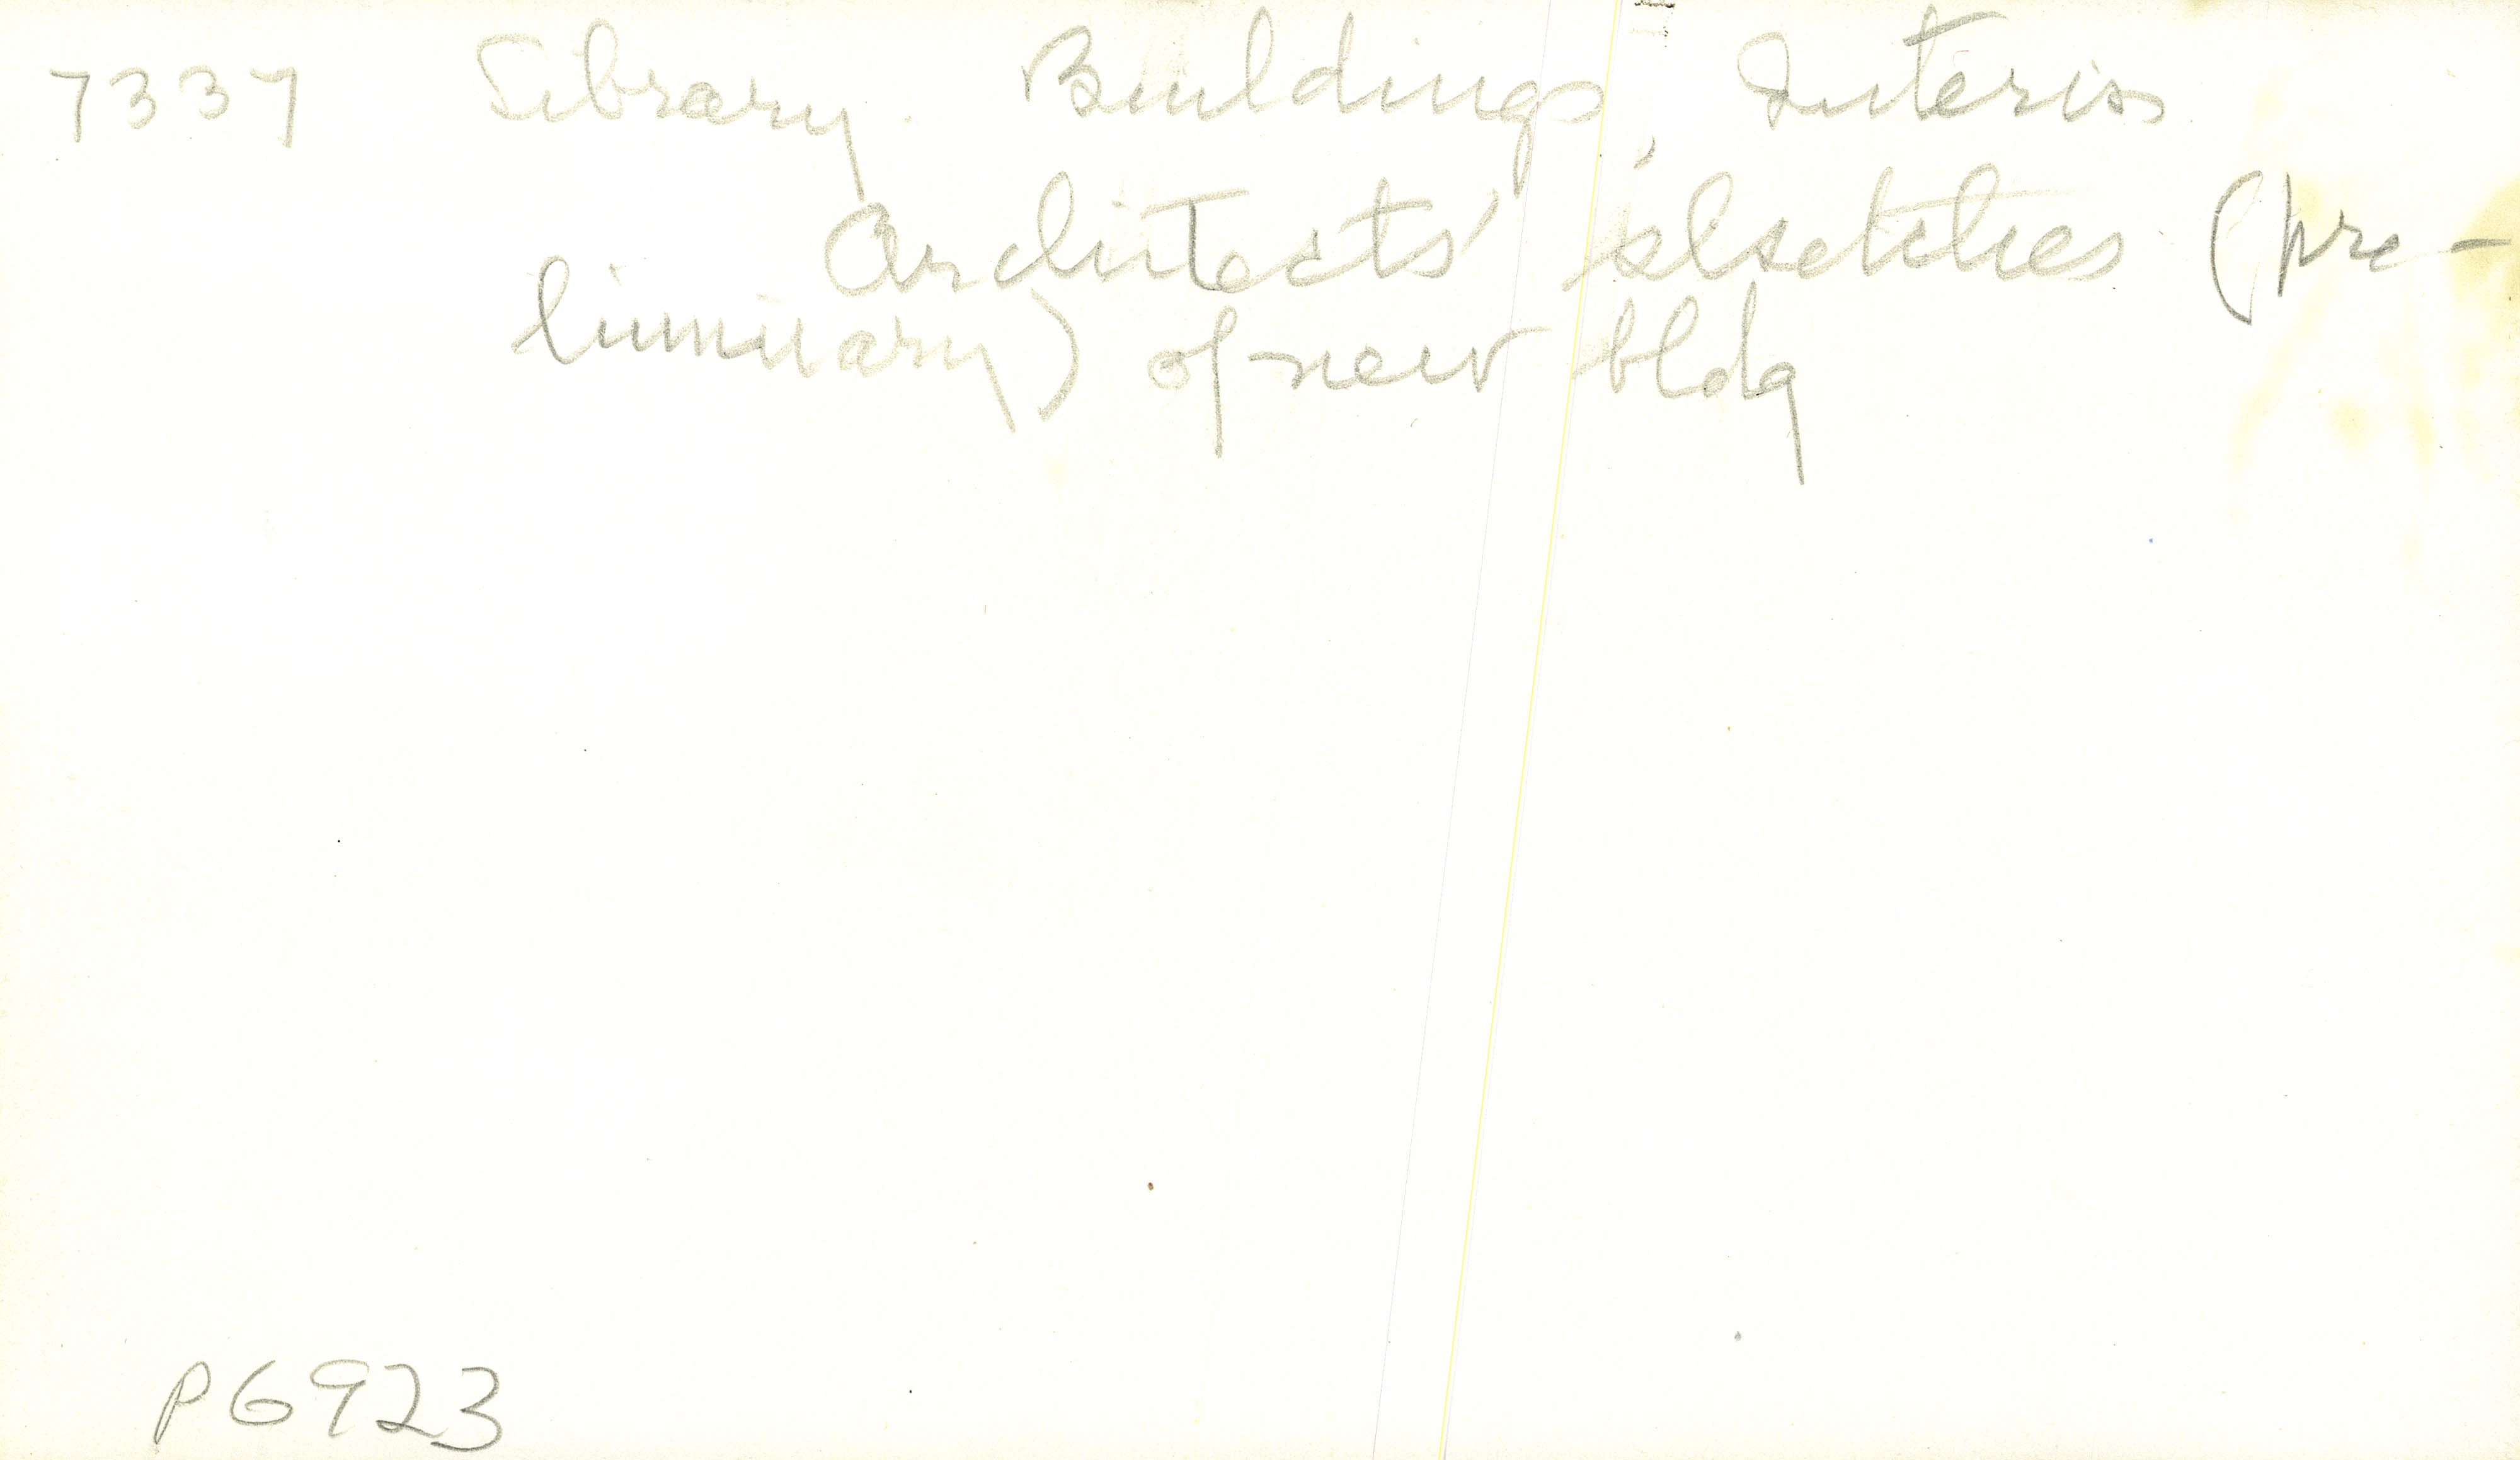 7337 Library. Buildings, Interior
Architects' sketches (pre-
liminary) of new bldg
P6923